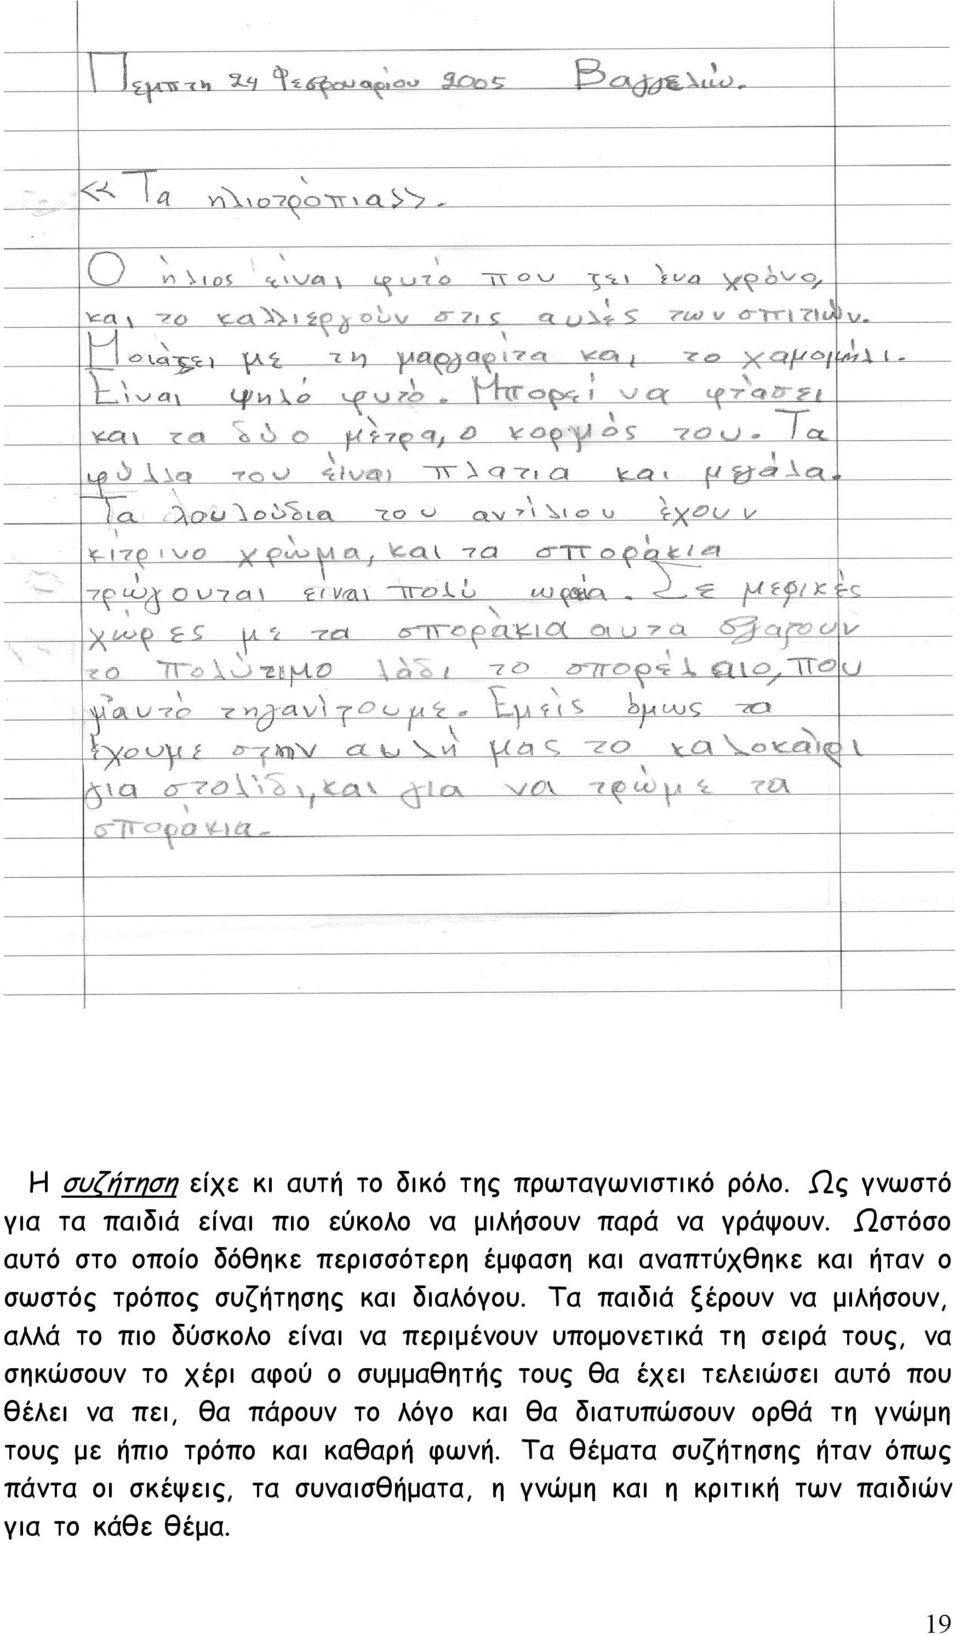 Πεμπτη 24 Φεβρουαρίου 2005 Βαγγελιώ.
«Τα ηλιοτρόπια».
Ο ήλιος είναι φυτο που ζει ένα χρόνο,
και το καλλιεργούν στις αυλές των σπιτιών.
Μοιάζει με τη μαργαρίτα και το χαμομήλι.
Είναι ψηλό φυτό. Μπορεί να φτάσει
και τα δύο μέτρα, ο κορμός του. Τα
φύλλα του είναι πλατια και μεγάλα.
Τα λουλούδια του αντίλιου έχουν
κίτρινο χρώμα, και τα σποράκια
τρώγονται είναι πολύ ωραία. Σε μερικές
χώρες με τα σποράκια αυτα βγαζουν
το πολύτιμο λάδι το σπορέλαιο, που
μ'αυτό τηγανίζουμε. Εμείς όμως τα
έχουμε στην αυλή μας το καλοκαίρι
για στολίδι, και για να τρώμε τα
σποράκια.
Η συζήτηση είχε κι αυτή το δικό της πρωταγωνιστικό ρόλο. Ως γνωστό
για τα παιδιά είναι πιο εύκολο να μιλήσουν παρά να γράψουν. Ωστόσο
αυτό στο οποίο δόθηκε περισσότερη έμφαση και αναπτύχθηκε και ήταν ο
σωστός τρόπος συζήτησης και διαλόγου. Τα παιδιά ξέρουν να μιλήσουν,
αλλά το πιο δύσκολο είναι να περιμένουν υπομονετικά τη σειρά τους, να
σηκώσουν το χέρι αφού ο συμμαθητής τους θα έχει τελειώσει αυτό που
θέλει να πει, θα πάρουν το λόγο και θα διατυπώσουν ορθά τη γνώμη
τους με ήπιο τρόπο και καθαρή φωνή. Τα θέματα συζήτησης ήταν όπως
πάντα οι σκέψεις, τα συναισθήματα, η γνώμη και η κριτική των παιδιών
για το κάθε θέμα.
19